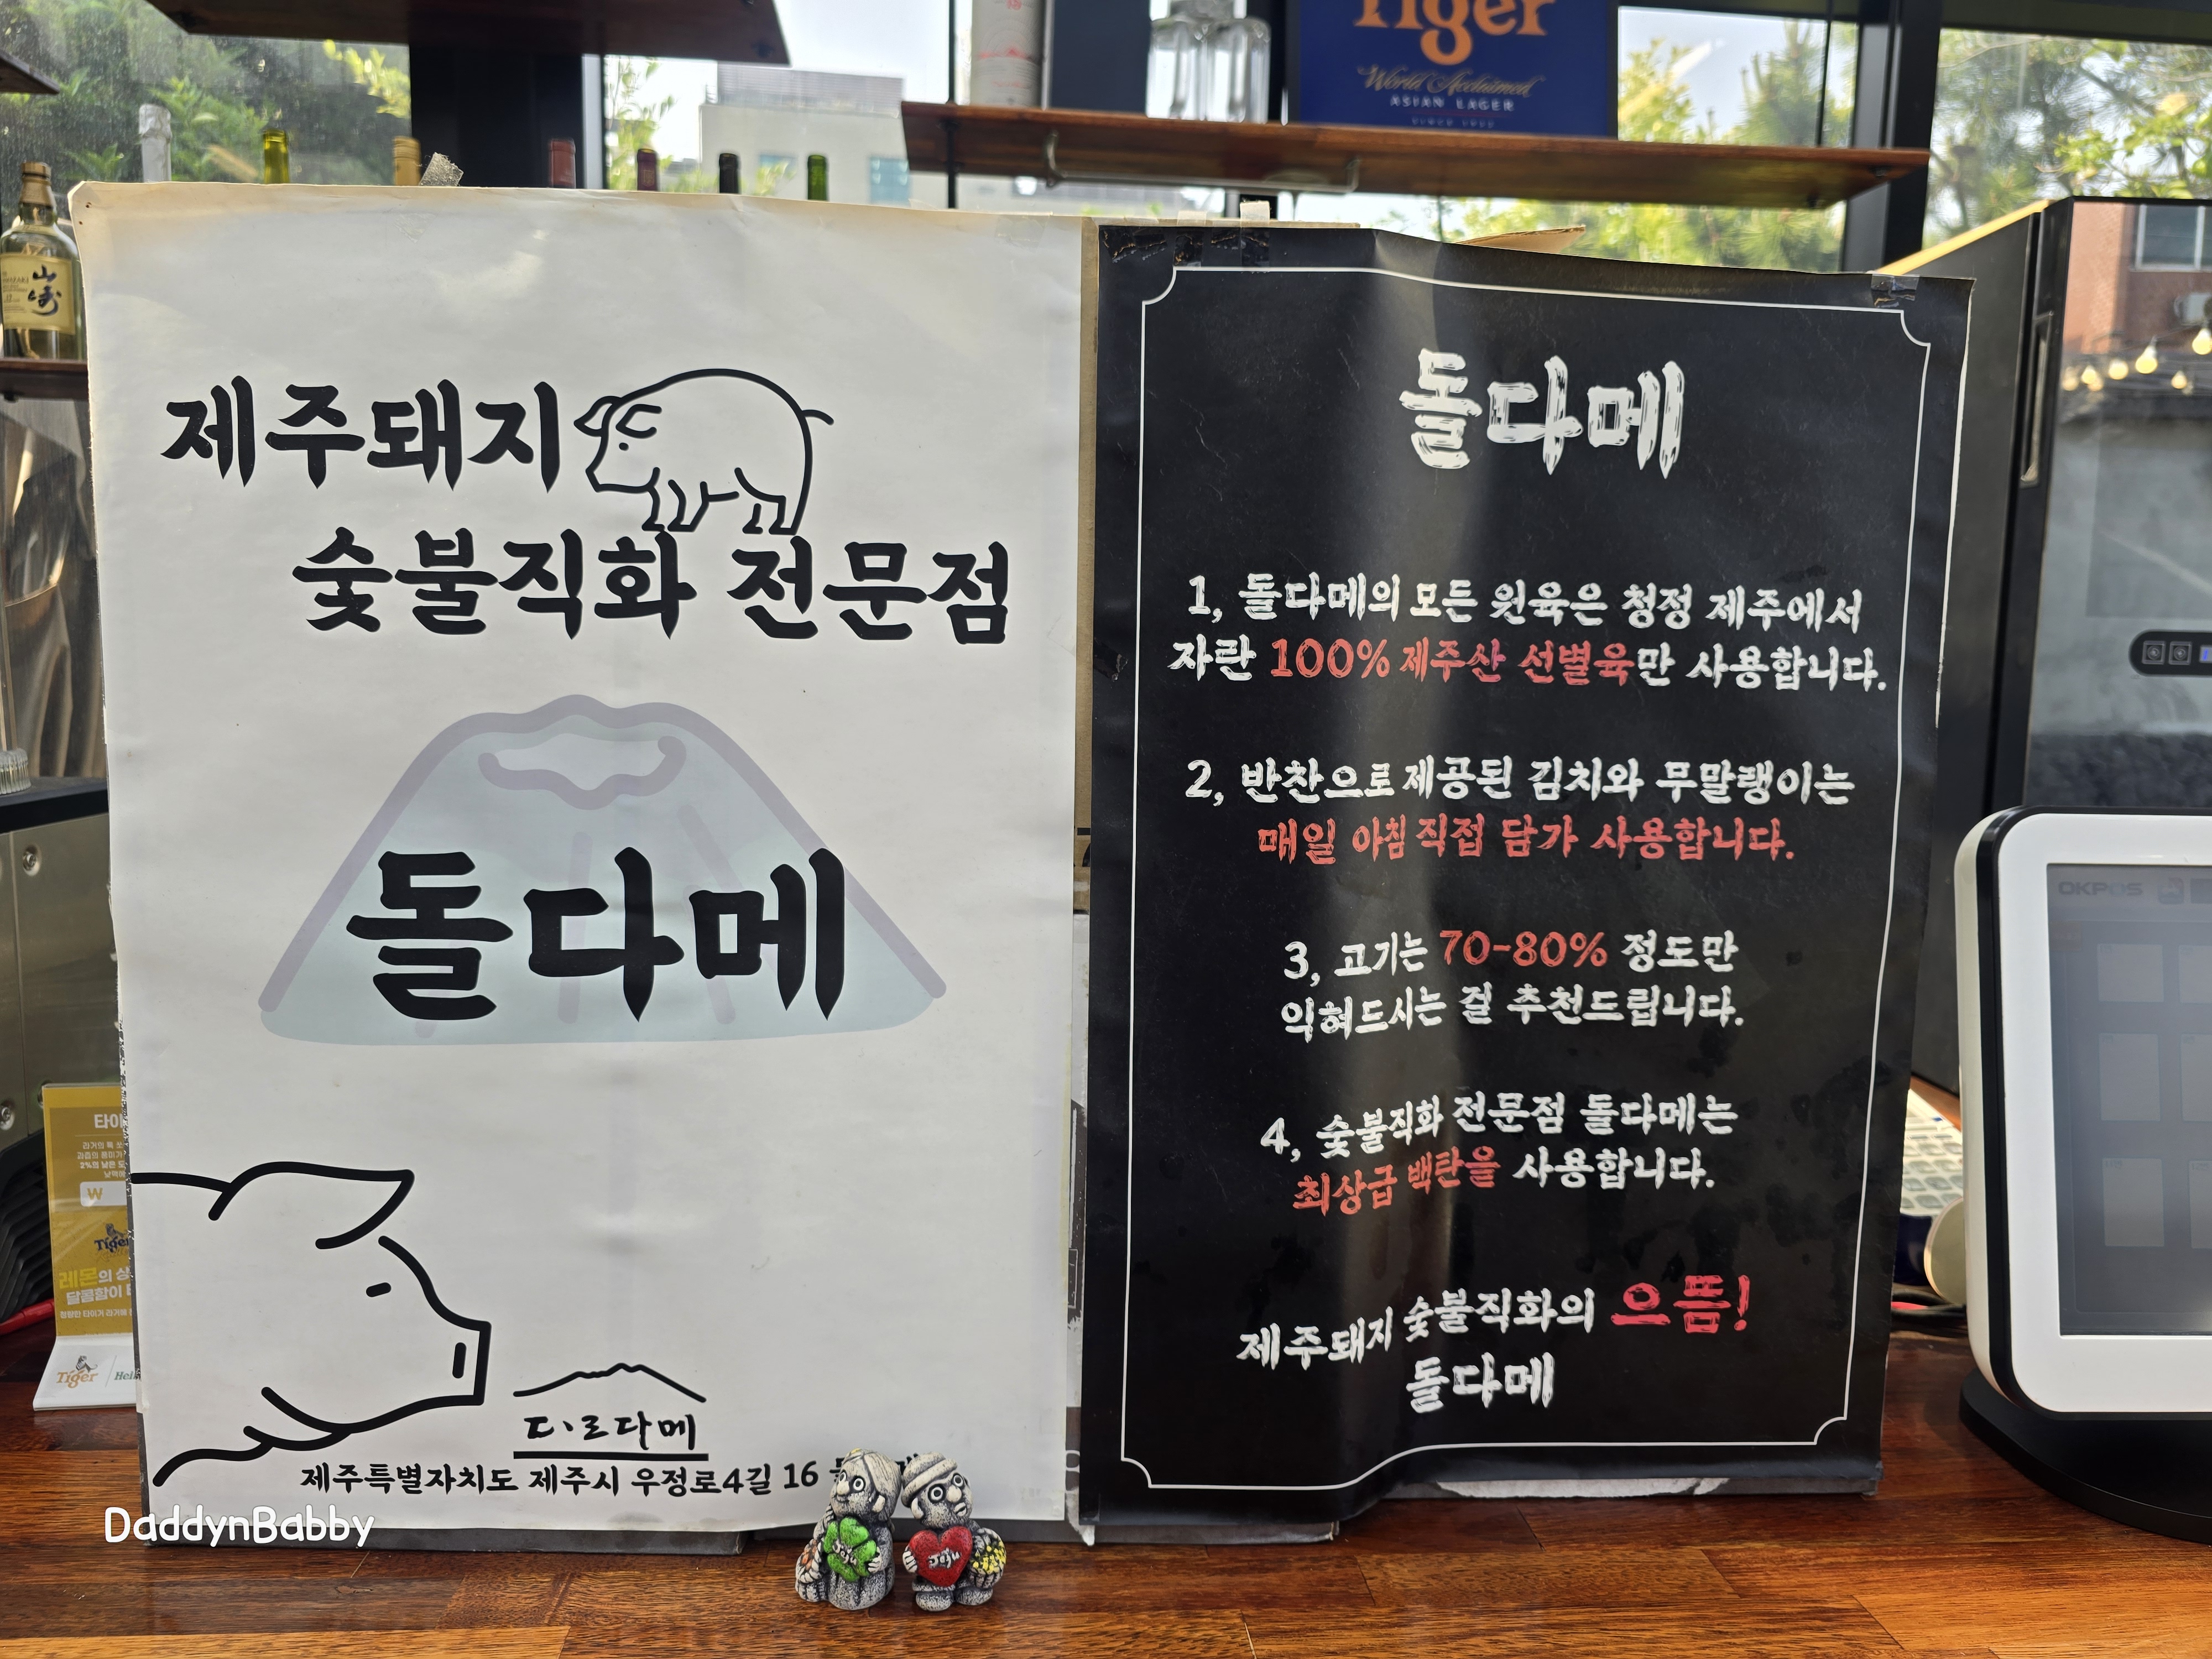 Tiger
World Acclaimed
ASIAN LAGER
山崎
제주돼지
숯불직화 전문점
돌다메
ㄷㆍㄹ다메
제주특별자치도 제주시 우정로4길 16
DaddynBabby
Jeju
Jeju
돌다메
1, 돌다메의 모든 원육은 청정 제주에서
자란 100% 제주산 선별육만 사용합니다.
2, 반찬으로 제공된 김치와 무말랭이는
매일 아침 직접 담가 사용합니다.
3, 고기는 70-80% 정도만
익혀드시는 걸 추천드립니다.
4, 숯불직화 전문점 돌다메는
최상급 백탄을 사용합니다.
제주돼지 숯불직화의 으뜸!
돌다메
OKPOS
레몬의
달콤함이
Tiger